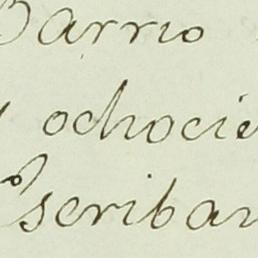 Barrio
ochocie
Escriban